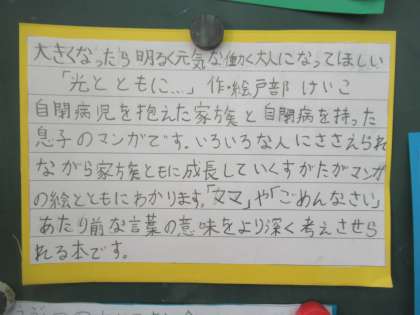 大きくなったら明るく元気な働く大人になってほしい
「光とともに…」作・絵戸部けいこ
自閉病児を抱えた家族と自閉病を持った
息子のマンガです。いろいろな人にささえられ
ながら家族ともに成長していくすがたがマンガ
の絵とともにわかります。「ママ」や「ごめんなさい」
あたり前な言葉の意味をより深く考えさせら
れる本です。